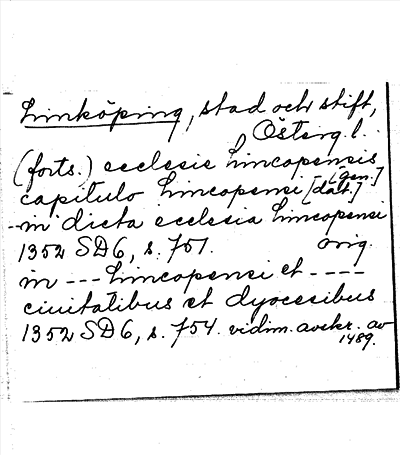 Linköping, stad och stift,
Österg. l.
(forts.) ecclesie Lincopensis
[gen.]
capitulo Lincopensi [dat.]
in dicta ecclesia Lincopensi
1352 SD6, s. 751. orig.
in --- Lincopensi et ----
ciuitatibus et dyocesibus
1352 SD6, s. 754. vidim. avskr. av
1489.